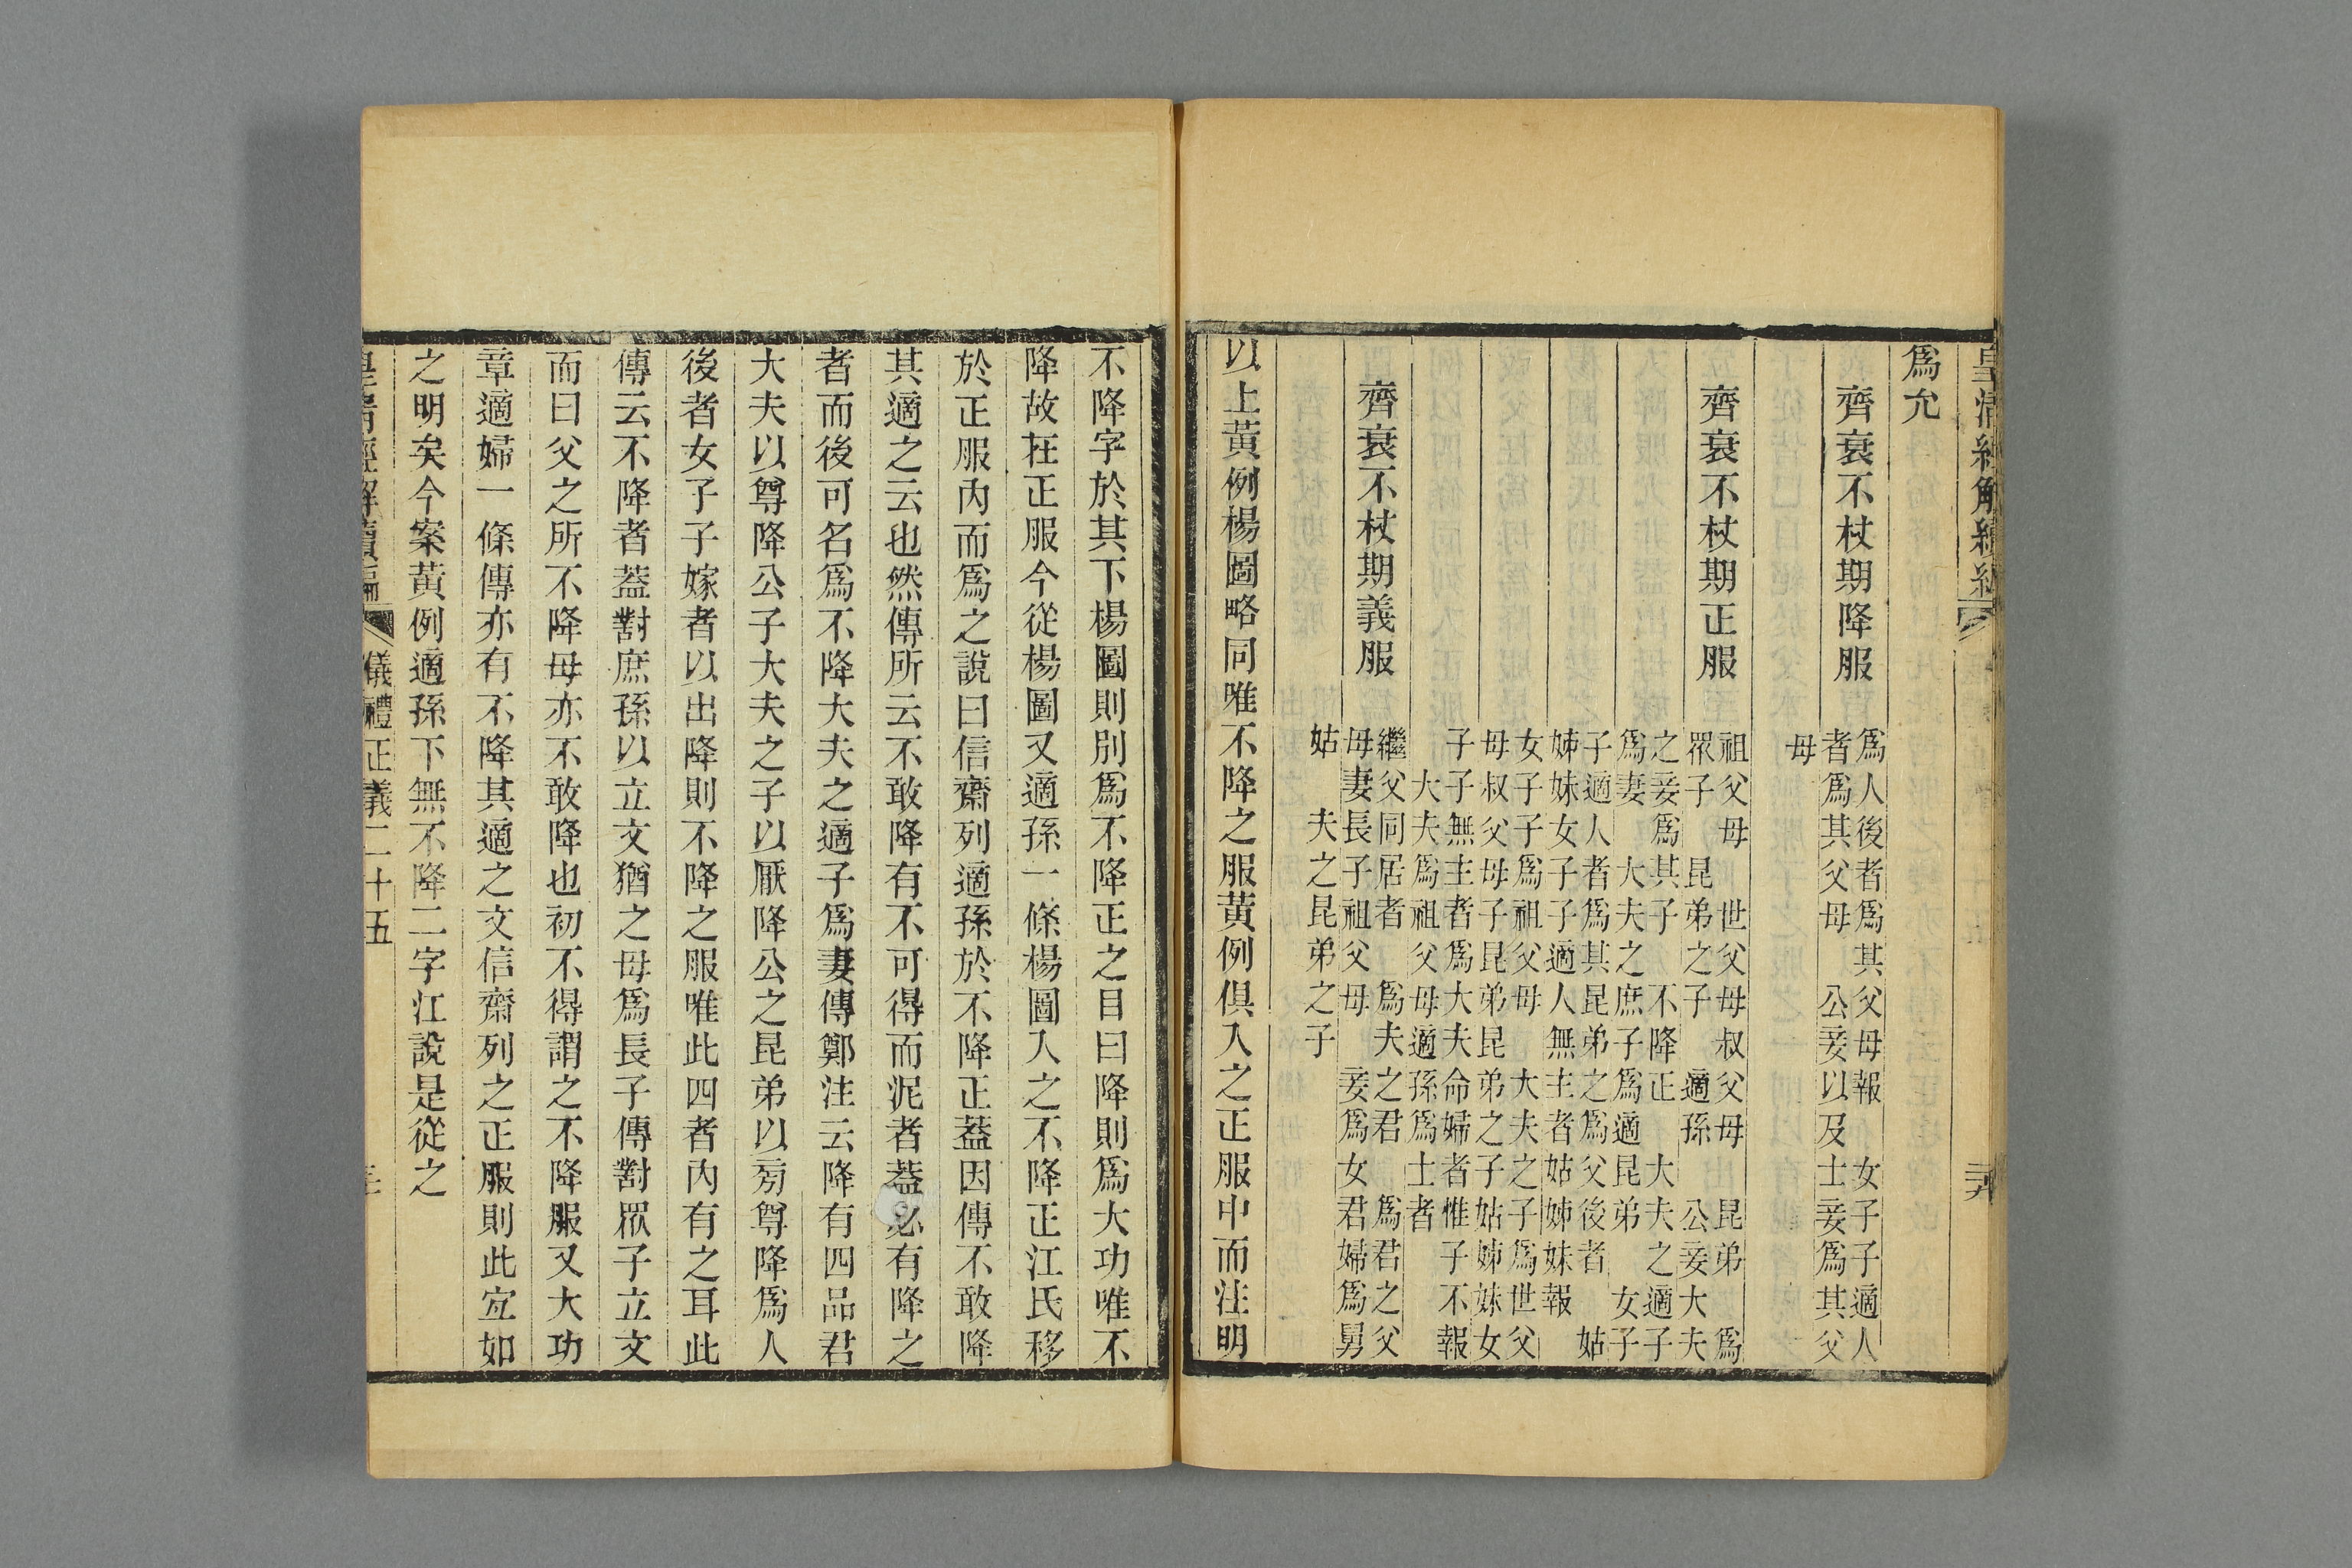 皇清經解續編
爲允
齊衰不杖期降服
爲人後者爲其父母報 女子子適人
者爲其父母 公妾以及士妾爲其父
母
齊衰不杖期正服
祖父母 世父母叔父母 昆弟 爲
眾子 昆弟之子 適孫 公妾大夫
之妾爲其子 不降正 大夫之適子
爲妻 大夫之庶子爲適昆弟 女子
子適人者爲其昆弟之爲父後者 姑
姊妹女子子適人無主者姑姊妹報
女子子爲祖父母 大夫之子爲世父
母叔父母子昆弟昆弟之子姑姊妹女
子子無主者爲大夫命婦者惟子不報
大夫爲祖父母適孫爲士者
齊衰不杖期義服
繼父同居者 爲夫之君 爲君之父
母妻長子祖父母 妾爲女君婦爲舅
姑 夫之昆弟之子
以上黃例楊圖略同唯不降之服黃例俱入之正服中而注明
不降字於其下楊圖則別爲不降正之目曰降則爲大功唯不
降故在正服今從楊圖又適孫一條楊圖入之不降正江氏移
於正服內而爲之說曰信齋列適孫於不降正蓋因傳不敢降
其適之云也然傳所云不敢降有不可得而泥者蓋必有降之
者而後可名爲不降大夫之適子爲妻傳鄭注云降有四品君
大夫以尊降公子大夫之子以厭降公之昆弟以旁尊降爲人
後者女子子嫁者以出降則不降之服唯此四者內有之耳此
傳云不降者蓋對庶孫以立文猶之母爲長子傳對眾子立文
而曰父之所不降母亦不敢降也初不得謂之不降服又大功
章適婦一條傳亦有不降其適之文信齋列之正服則此宜如
之明矣今案黃例適孫下無不降二字江說是從之
皇清經解續編 儀禮正義二十五